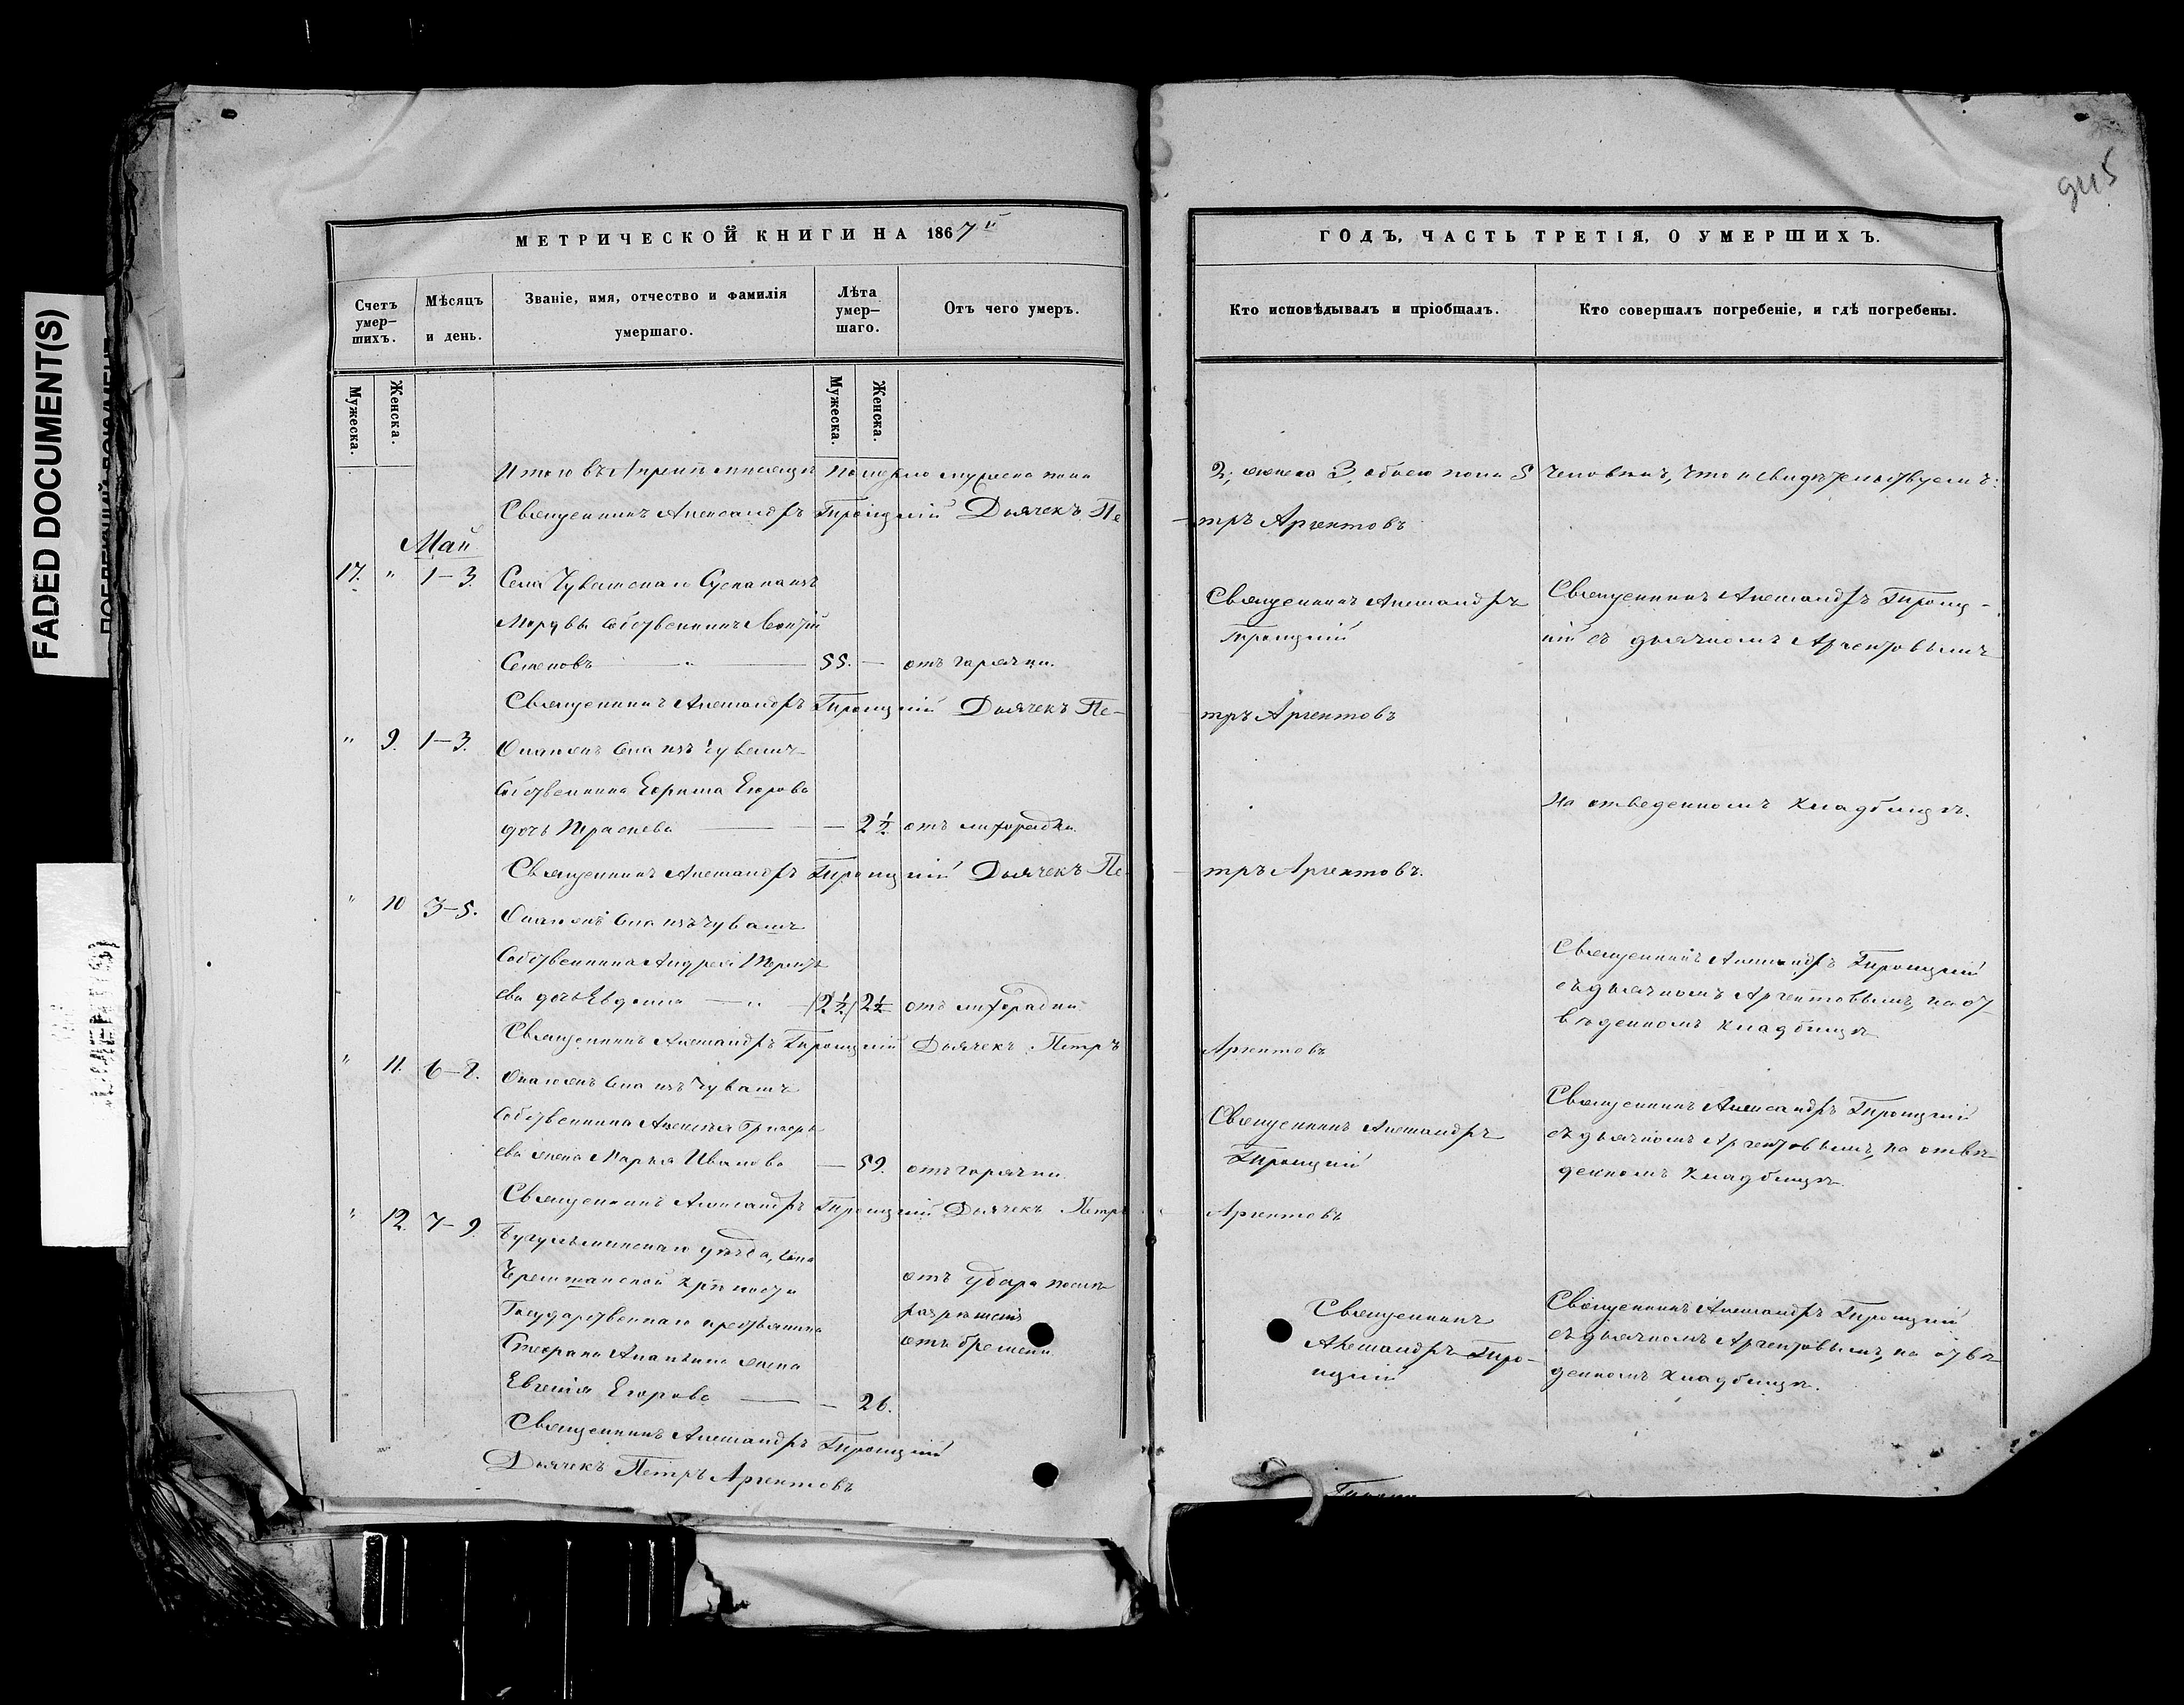 FADED DOCUMENT(S)
945
МЕТРИЧЕСКОЙ КНИГИ НА 1867й
Счетъ умер-шихъ.
Мѣсяцъ и день.
Званіе, имя, отчество и фамилія умершаго.
Лѣта умер-шаго.
Отъ чего умеръ.
Мужеска.
Женска.
Мужеска.
Женска.
Итого въ Апрелѣ мѣсяцѣ померло мужеска пола
Священникъ Александръ Троицкій Дьячекъ Пе
Май
17. " 1–3. Села Чувашскаго
Мордвы собственникъ Леонтій
Семеновъ — " — 55. — отъ горячки.
Священникъ Александръ Троицкій Дьячекъ Пе-
" 9. 1–3. Онагожъ села изъ чувашъ
собственника Егорова
дочь — — 2½ отъ лихорадки.
Священникъ Александръ Троицкій Дьячекъ Пе-
" 10 3–5. Онагожъ села изъ чувашъ
Собственника Андрея Терентье
ева дочь Евдокия — " — (2½) 2½ отъ лихорадки
Священникъ Александръ Троицкій Дьячекъ Петръ
" 11. 6–8. Онагожъ села изъ Чувашъ
собственника Алексѣя Григорь
ева жена Марья Иванова — 59. отъ горячки
Священникъ Александръ Троицкій Дьячекъ Петръ
" 12. 7–9. Бугульминскаго уѣзда, села
Черемшанской крѣпости
Государственнаго крестьянина
Стефана Ананьина жена
Евгенія Егорова — — 26.
отъ удара послѣ
разрѣшенія
отъ бремени.
Священникъ Александръ Троицкій
Дьячекъ Петръ Аргентовъ
ГОДЪ, ЧАСТЬ ТРЕТІЯ, О УМЕРШИХЪ.
Кто исповѣдывалъ и пріобщалъ.
Кто совершалъ погребеніе, и гдѣ погребены.
2, женска 3, обоего пола 5 человѣкъ, что и свидѣтельствуемъ:
тръ Аргентовъ
Священникъ Александръ
Троицкій
Священникъ Александръ Троиц-
кій съ дьячкомъ Аргентовымъ
тръ Аргентовъ
На отведенномъ кладбищѣ.
тръ Аргентовъ.
Священникъ Александръ Троицкій
съ дьячкомъ Аргентовымъ, на от
веденномъ кладбищѣ
Аргентовъ
Священникъ Александръ
Троицкій
Священникъ Александръ Троицкій
съ дьячкомъ Аргентовымъ, на отве-
денномъ кладбищѣ.
Аргентовъ
Священникъ
Александръ Трои-
цкій
Священникъ Александръ Троицкій
съ дьячкомъ Аргентовымъ, на отве
денномъ кладбищѣ.